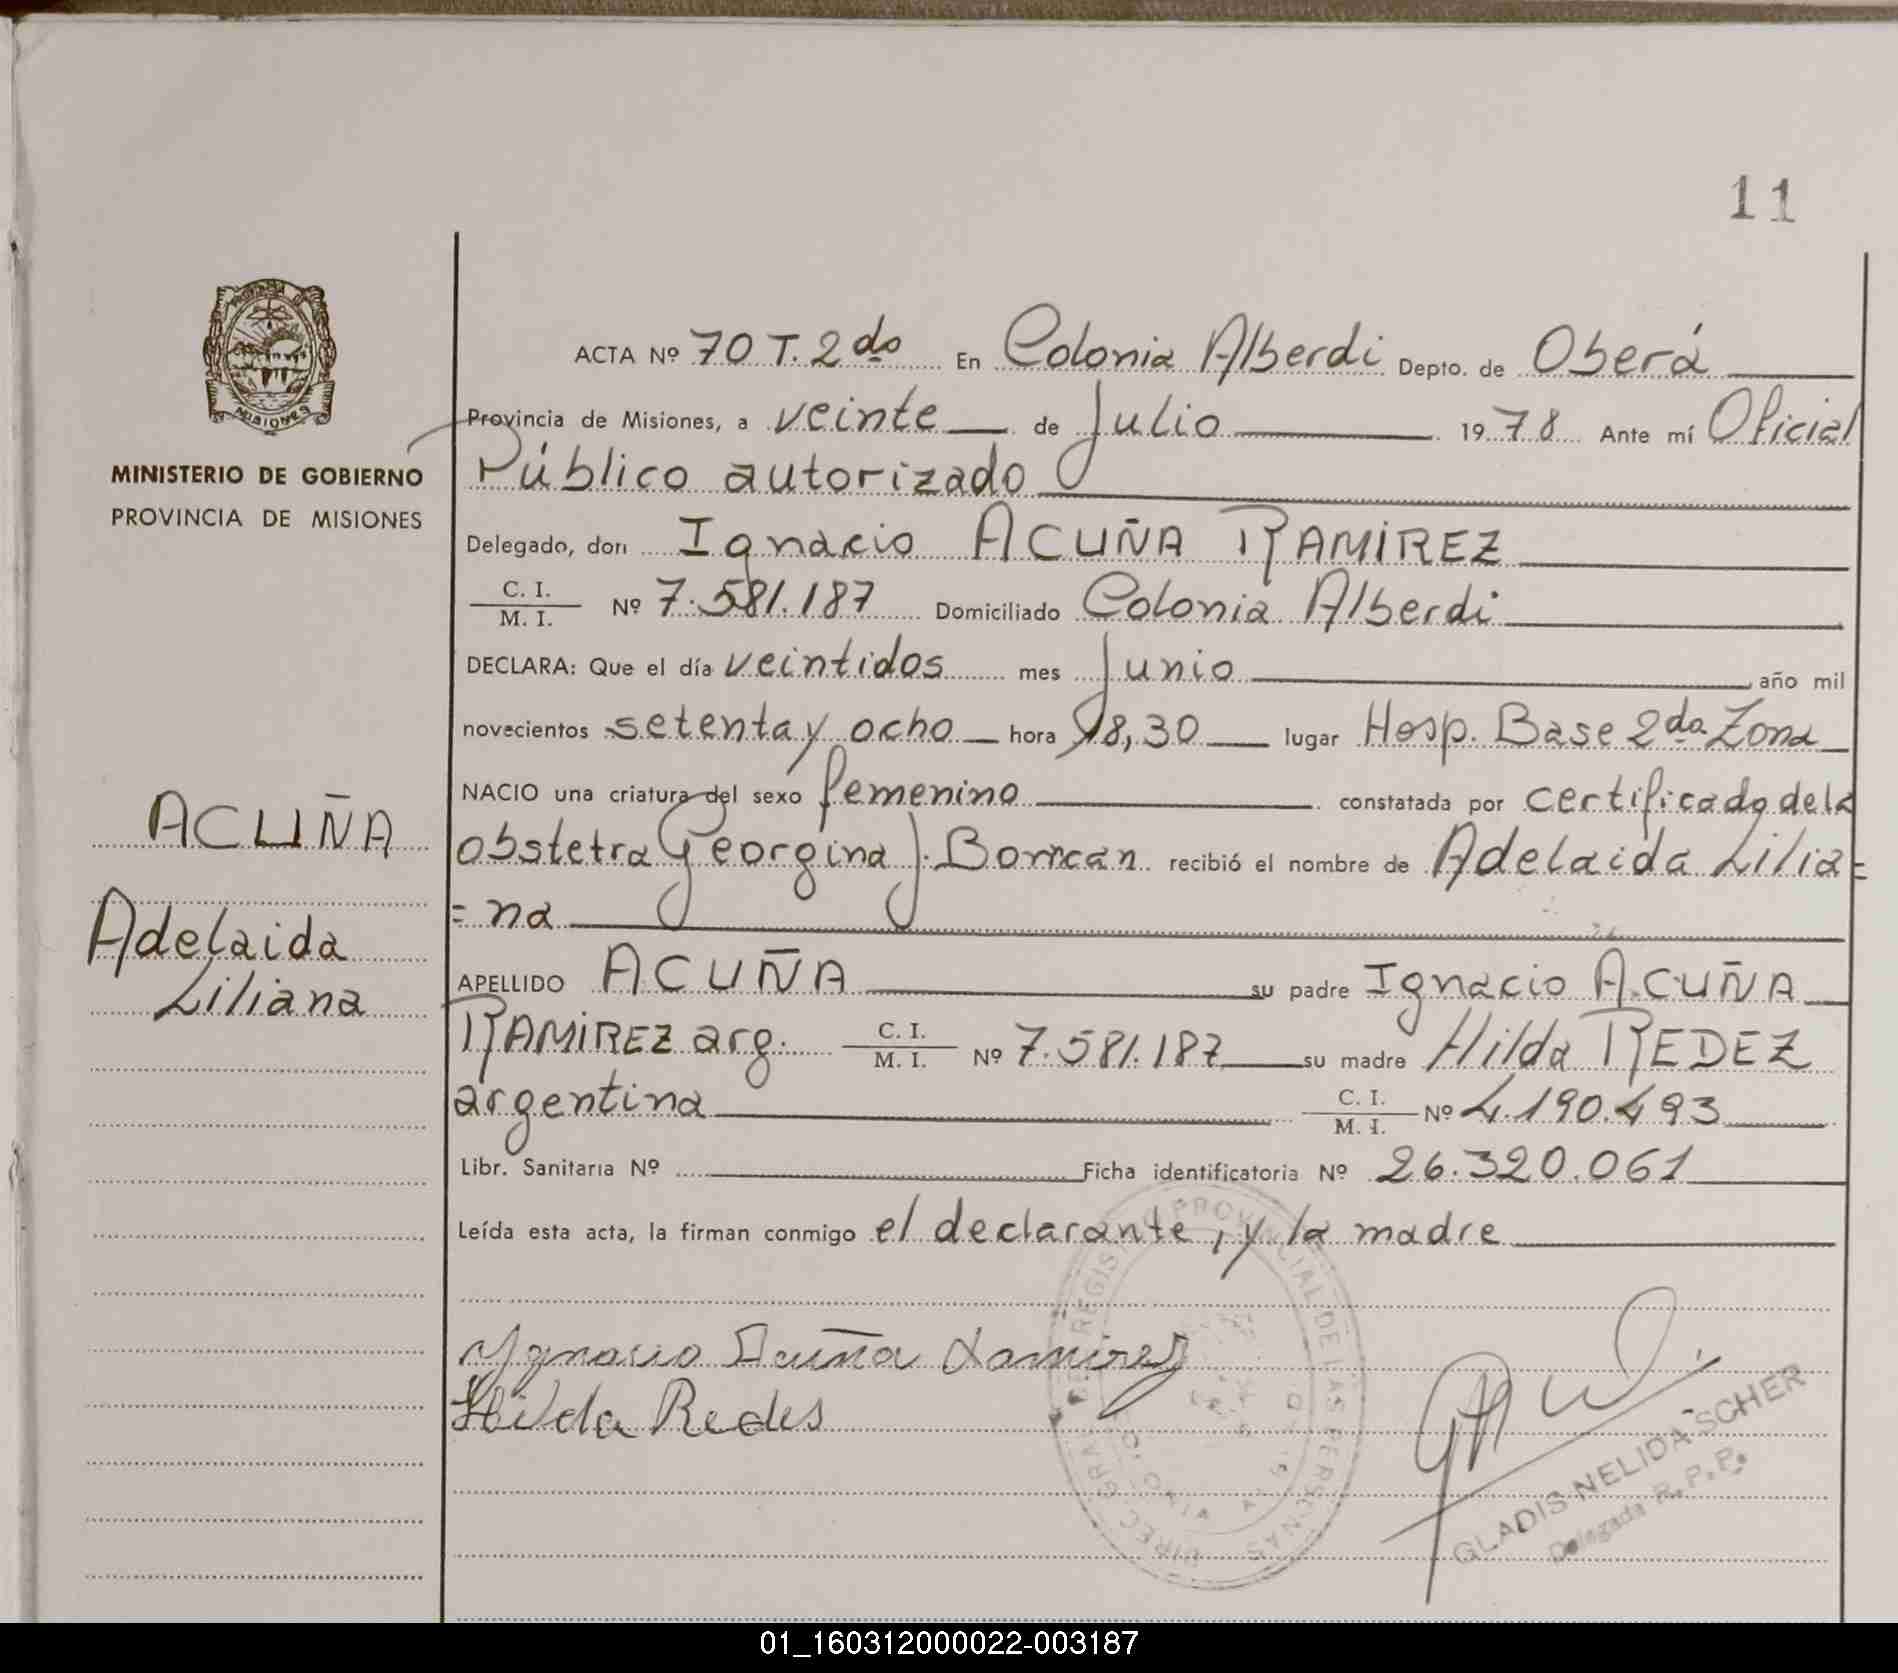 11
MISIONES
MINISTERIO DE GOBIERNO
PROVINCIA DE MISIONES
ACUÑA
Adelaida
Liliana
ACTA Nº 70 T. 2do En Colonia Alberdi Depto. de Oberá
Provincia de Misiones, a veinte de Julio 1978 Ante mí Oficial
Público autorizado
Delegado, don Ignacio ACUÑA RAMIREZ
C. I.
M. I. Nº 7.581.187 Domiciliado Colonia Alberdi
DECLARA: Que el día veintidos mes Junio año mil
novecientos setenta y ocho hora 18,30 lugar Hosp. Base 2da Zona
NACIO una criatura del sexo femenino constatada por certificado de la
obstetra Georgina J. recibió el nombre de Adelaida Lilia=
=na
APELLIDO ACUÑA su padre Ignacio ACUÑA
RAMIREZ arg. C. I.
M. I. Nº 7.581.187 su madre Hilda REDEZ
argentina C. I.
M. I. Nº 4.190.493
Libr. Sanitaria Nº Ficha identificatoria Nº 26.320.061
Leída esta acta, la firman conmigo el declarante, y la madre
Ygnacio Acuña Ramirez
Hilda Redes
DIREC. GRAL. REGISTRO PROVINCIAL DE LAS PERSONAS
GLADIS NELIDA SCHER
Delegada R.P.P.
01_160312000022-003187